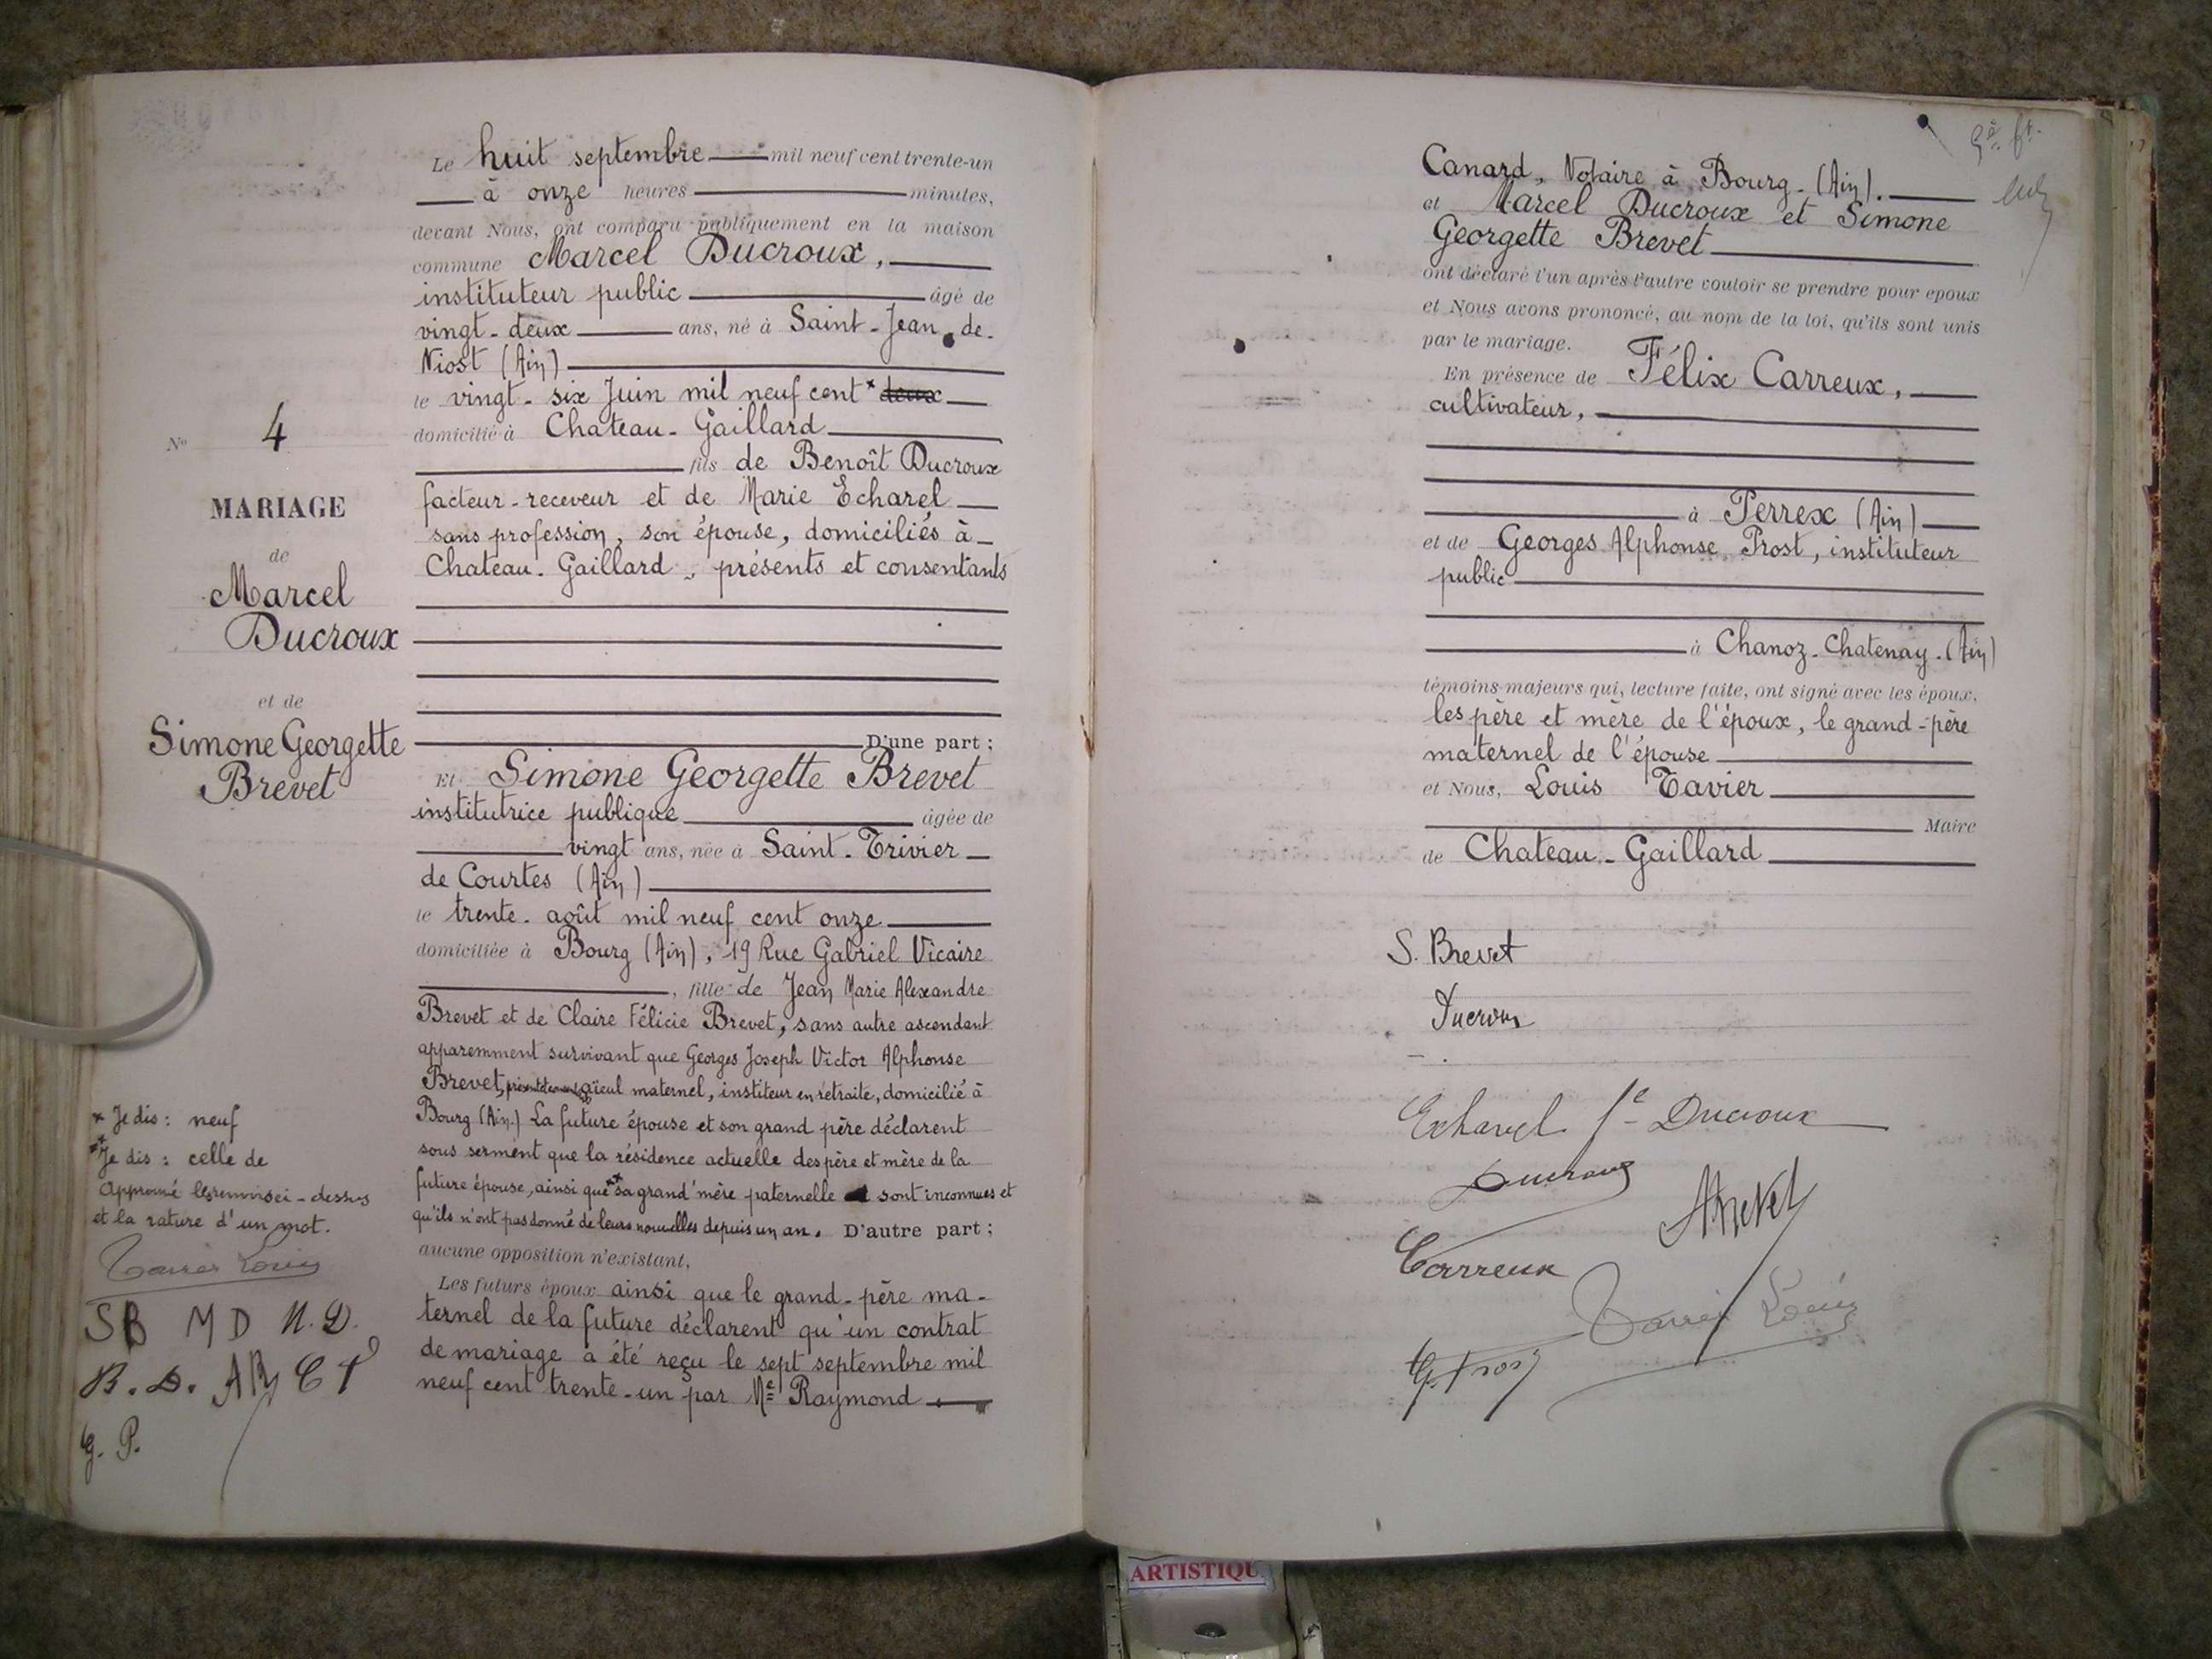 Le huit septembre mil neuf cent trente-un
à onze heures minutes,
devant Nous, ont comparu publiquement en la maison
commune Marcel Ducroux,
instituteur public âgé de
vingt-deux ans, né à Saint-Jean-de-
Niost (Ain)
le vingt-six Juin mil neuf cent * deux
domicilié à Chateau-Gaillard
fils de Benoît Ducroux
facteur-receveur et de Marie Echarel
sans profession, son épouse, domiciliés à
Chateau-Gaillard, présents et consentants
D'une part ;
Et Simone Georgette Brevet
institutrice publique âgée de
vingt ans, née à Saint-Trivier
de Courtes (Ain)
le trente août mil neuf cent onze
domiciliée à Bourg (Ain), 19 Rue Gabriel Vicaire
, fille de Jean Marie Alexandre
Brevet et de Claire Félicie Brevet, sans autre ascendant
apparemment survivant que Georges Joseph Victor Alphonse
Brevet, aïeul maternel, instituteur en retraite, domicilié à
Bourg (Ain.) La future épouse et son grand père déclarent
sous serment que la résidence actuelle des père et mère de la
future épouse, ainsi que ** sa grand'mère paternelle sont inconnues et
qu'ils n'ont pas donné de leurs nouvelles depuis un an. D'autre part ;
aucune opposition n'existant,
Les futurs époux ainsi que le grand-père ma-
ternel de la future déclarent qu'un contrat
de mariage a été reçu le sept septembre mil
neuf cent trente-un par Me Raymond
N° 4
MARIAGE
de
Marcel
Ducroux
et de
Simone Georgette
Brevet
* Je dis : neuf
** Je dis : celle de
Approuvé les renvois ci-dessus
et la rature d'un mot.
Tavier Louis
SB MD M.D.
B.D. AB C F
G. P.
Canard, Notaire à Bourg-(Ain).
et Marcel Ducroux et Simone
Georgette Brevet
ont déclaré l'un après l'autre vouloir se prendre pour époux
et Nous avons prononcé, au nom de la loi, qu'ils sont unis
par le mariage.
En présence de Félix Carreux,
cultivateur,
à Perrex (Ain)
et de Georges Alphonse Prost, instituteur
public
à Chanoz-Chatenay-(Ain)
témoins majeurs qui, lecture faite, ont signé avec les époux,
les père et mère de l'époux, le grand-père
maternel de l'épouse
et Nous, Louis Tavier
Maire
de Chateau-Gaillard
S. Brevet
Ducroux
Echarel fe Ducroux
Ducroux
ABrevet
Carreux
Tavier Louis
G. Prost
ARTISTIQU